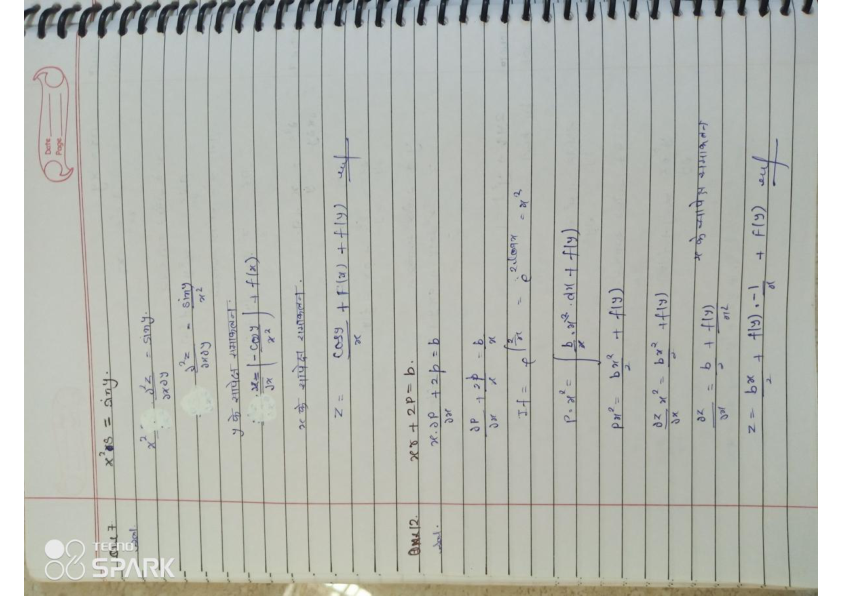 Date
Page
Que 7 x²s = siny.
Sol.
x² ∂²z/∂x∂y = siny.
∂²z/∂x∂y = siny/x²
y के सापेक्ष समाकलन.
∂z/∂x = (-cosy/x²) + f(x)
x के सापेक्ष समाकलन.
z = cosy/x + f(x) + f(y)
Que 12. xr + 2p = b.
Sol.
x.∂p/∂x + 2p = b
∂p/∂x + 2p/x = b/x
I.f = e^∫2/x = e^2.logx = x²
p.x² = ∫ b/x . x² . dx + f(y)
px² = bx²/2 + f(y)
∂z/∂x x² = bx²/2 + f(y)
∂z/∂x = b/2 + f(y)/x² x के सापेक्ष समाकलन
z = bx/2 + f(y) . -1/x + F(y)
TECNO
SPARK